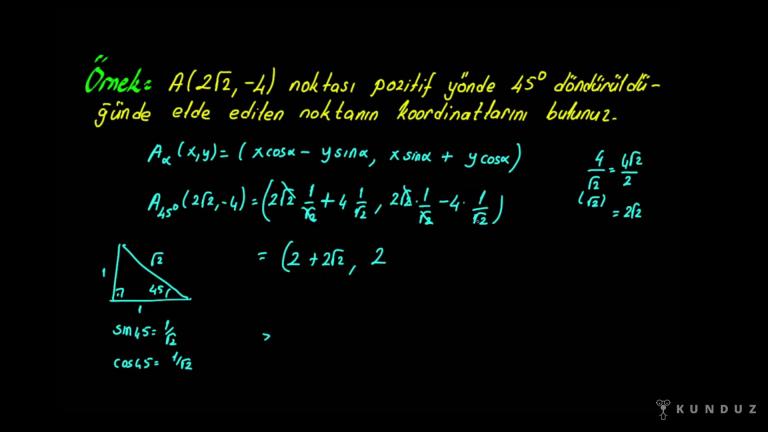 Örnek: A(2√2, -4) noktası pozitif yönde 45° döndürüldü-
ğünde elde edilen noktanın koordinatlarını bulunuz.
Aα(x,y) = (x cosα - y sinα, x sinα + y cosα)
A45°(2√2, -4) = (2√2 · 1/√2 + 4 · 1/√2, 2√2 · 1/√2 - 4 · 1/√2)
4/√2 = 4√2/2
(√2)
= 2√2
= (2 + 2√2, 2
1
√2
45
1
sin45 = 1/√2
cos45 = 1/√2
KUNDUZ